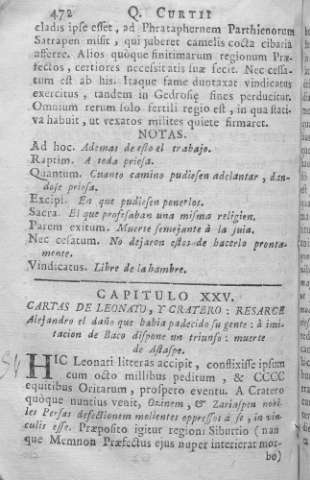 472 Q. CURTII
cladis ipse esset, ad Phrataphernem Parthienorum
Satrapen misit, qui juberet camelis cocta cibaria
afferre. Alios quoque finitimarum regionum Præ-
fectos, certiores necessitatis suæ fecit. Nec cessa-
tum est ab his. Itaque fame duntaxat vindicatus
exercitus, tandem in Gedrosiæ fines perducitur.
Omnium rerum solo fertili regio est, in qua stati-
va habuit, ut vexatos milites quiete firmaret.
NOTAS.
Ad hoc. Ademas de esto el trabajo.
Raptim. A toda priesa.
Quantum. Cuanto camino pudiesen adelantar, dan-
dose priesa.
Excipi. En que pudiesen ponerlos.
Sacra. El que profesaban una misma religion.
Parem exitum. Muerte semejante à la suia.
Nec cesatum. No dejaron estos de hacerlo pronta-
mente.
Vindicatus. Libre de la hambre.
CAPITULO XXV.
CARTAS DE LEONATO, Y CRATERO: RESARCE
Alejandro el daño que habia padecido su gente: à imi-
tacion de Baco dispone un triunfo: muerte
de Astaspe.
HIC Leonati litteras accipit, conflixisse ipsum
cum octo millibus peditum, & CCCC
equitibus Oritarum, prospero eventu. A Cratero
quoque nuntius venit, Ozinem, & Zariaspen nobi-
les Persas defectionem molientes oppressos à se, in vin-
culis esse. Præposito igitur regioni Siburtio (nam-
que Memnon Præfectus ejus nuper interierat mor-
bo)